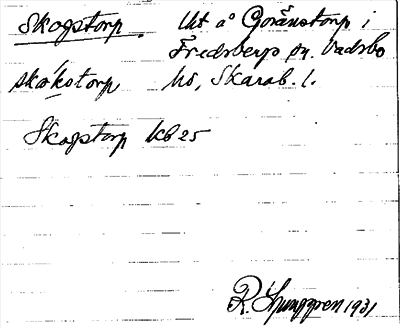 Skogstorp. Ut å Göranstorp i
Fredsbergs sn. Vadsbo
skåkstorp hd, Skarab. l.
Skogstorp KB 25
R. Ljunggren 1931